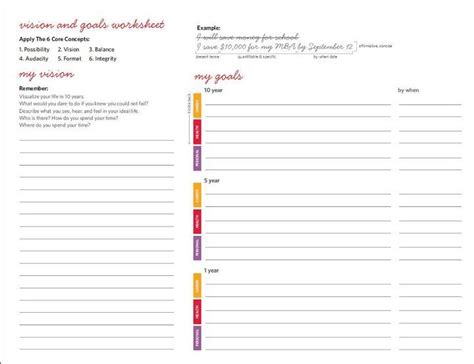 vision and goals worksheet
Apply The 6 Core Concepts:
1. Possibility 2. Vision 3. Balance
4. Audacity 5. Format 6. Integrity
my vision
Remember:
Visualize your life in 10 years.
What would you dare to do if you knew you could not fail?
Describe what you see, hear, and feel in your ideal life.
Who is there? How do you spend your time?
Where do you spend your time?
Example:
I will save money for school
I save $10,000 for my MBA by September 12
affirmative, concise
present tense quantifiable & specific by when date
my goals
10 year by when
CAREER
HEALTH
PERSONAL
5 year
CAREER
HEALTH
PERSONAL
1 year
CAREER
HEALTH
PERSONAL